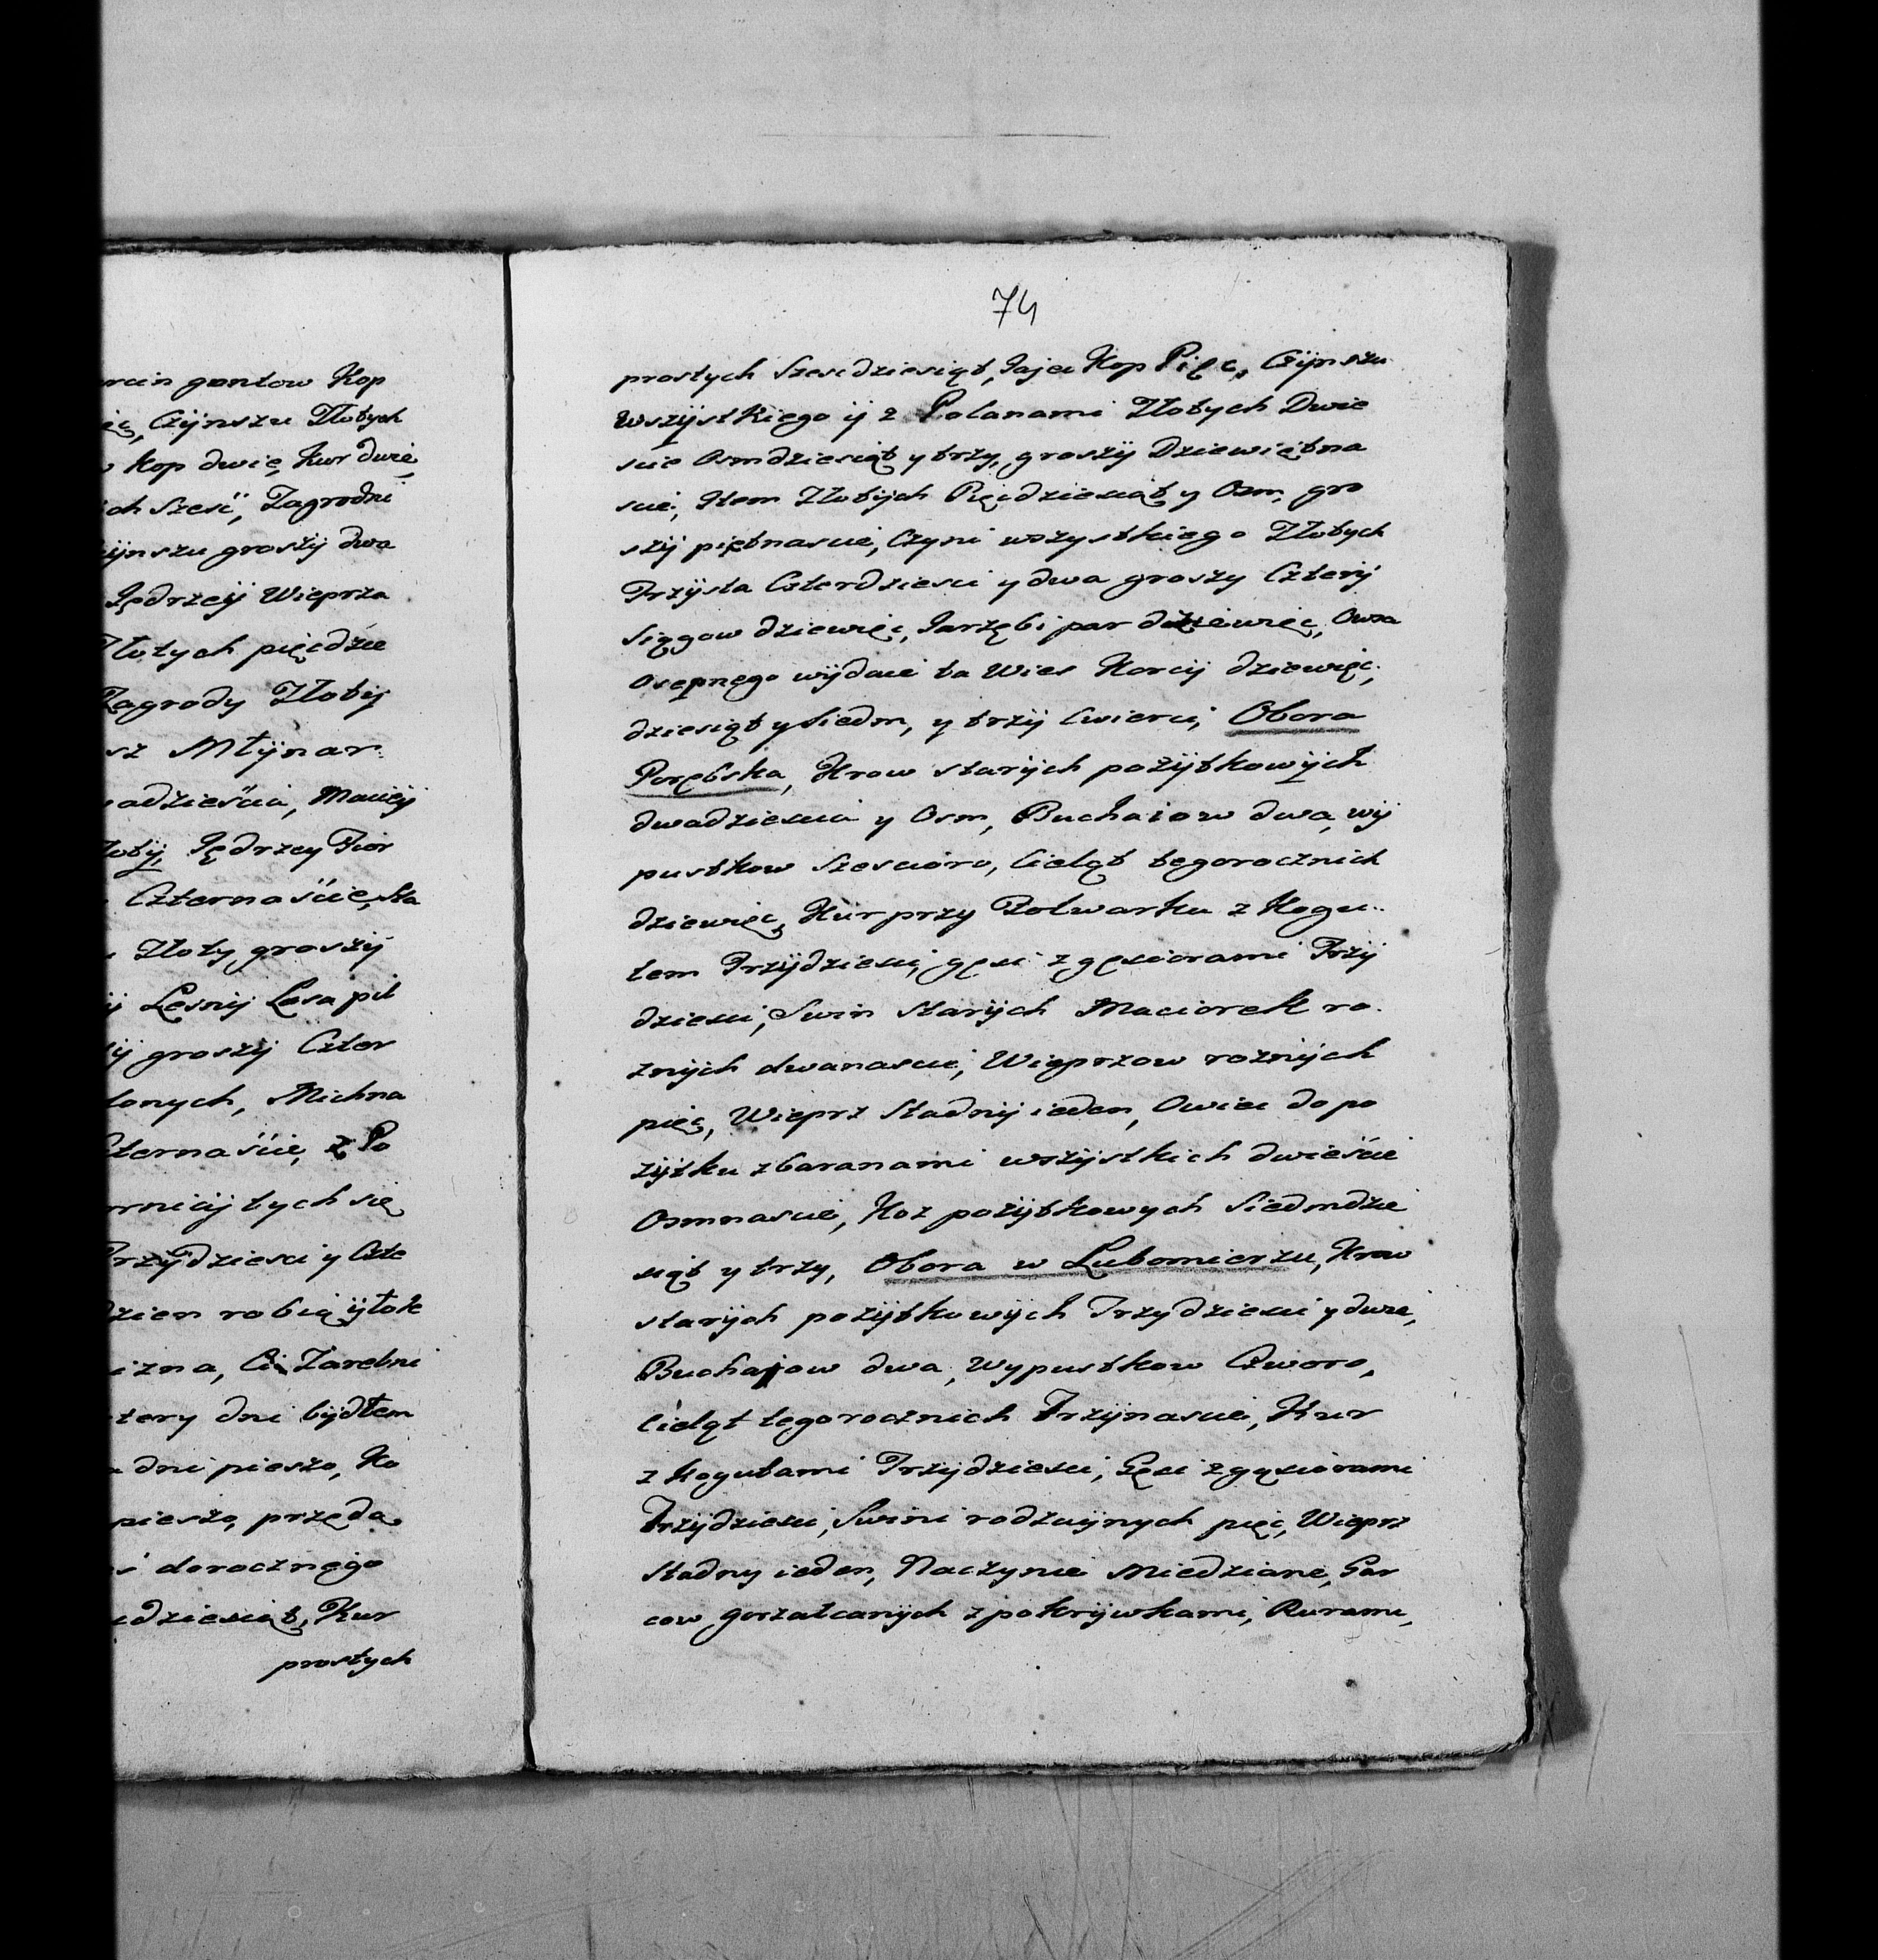 gontow Kop
Czÿnszu Złotych
Kop dwie, Kur dwie
Szesć, Zagrodni
groszÿ dwa
Jędrzeÿ Wieprza
Złotych pięcdzie
Zagrody Złotÿ
Młÿnar
Maciej
Jędrzey Pior
Czternaście, Sta
Złoty, groszÿ
Lesnÿ Lasa pil
groszÿ Czter
Michna
z Po
tych się
Trzÿdziesci y Czte
robią
Ci Zarebni
dni bÿdłem
dni pieszo, Ko
pieszo, przęda
dorocznego
Kur
prostych
74
prostych Szescdziesiąt, Jajec Kop Pięc, Czÿnszu
wszÿstkiego ÿ z Polanami Złotych Dwie
scie Osmdziesiąt y trzy, groszÿ Dziewiętna
scie, Item Złotÿch Pięcdziesiąt y Osm, gro
szÿ piętnascie, Czyni wszystkiego Złotych
Trzÿsta Czterdziesci y dwa groszy Czterÿ
Siągow dziewięc, Jarzębi par dziewięc, Owsa
Osepnego wÿdaie ta Wies Korcÿ dziewięc,
dziesiąt y siedm, y trzÿ cwierci, Obora
Porębska, Krow starÿch pożÿtkowÿch
dwadziescia y Osm, Buchaiow dwa, wÿ
pustkow Szescioro, Cieląt tegorocznich
dziewięc, Kur przy Folwarku z Kogu..
tem Trzÿdziesci, gęsi z gęsiorami Trzÿ
dziesci, Swin Starÿch Maciorek ro.
znÿch dwanascie, Wieprzow roznÿch
pięc, Wieprz Stadnÿ ieden, Owiec do po
zÿtku z baranami wszÿstkich dwieście
Osmnascie, Koz pożytkowych Siedmdzie
siąt y trzy, Obora w Lubomierzu, Krow
starÿch pożÿtkowÿch Trzydziesci y dwie,
Buchajow dwa, Wypustkow Czworo,
Cieląt tegorocznich Trzÿnascie, Kur
z kogutami Trzÿdziesci, Gęsi z gęsiorami
Trzÿdziesci, Swini rodzaÿnych pięc, Wieprz
Stadny ieden, Naczynie Miedziane, Gar
cow gorzałcanÿch z pokrÿwkami, Rurami,